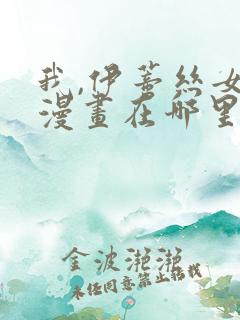 我,伊蕃丝女
漫畫在哪里
金波滟滟
未经同意禁止转载